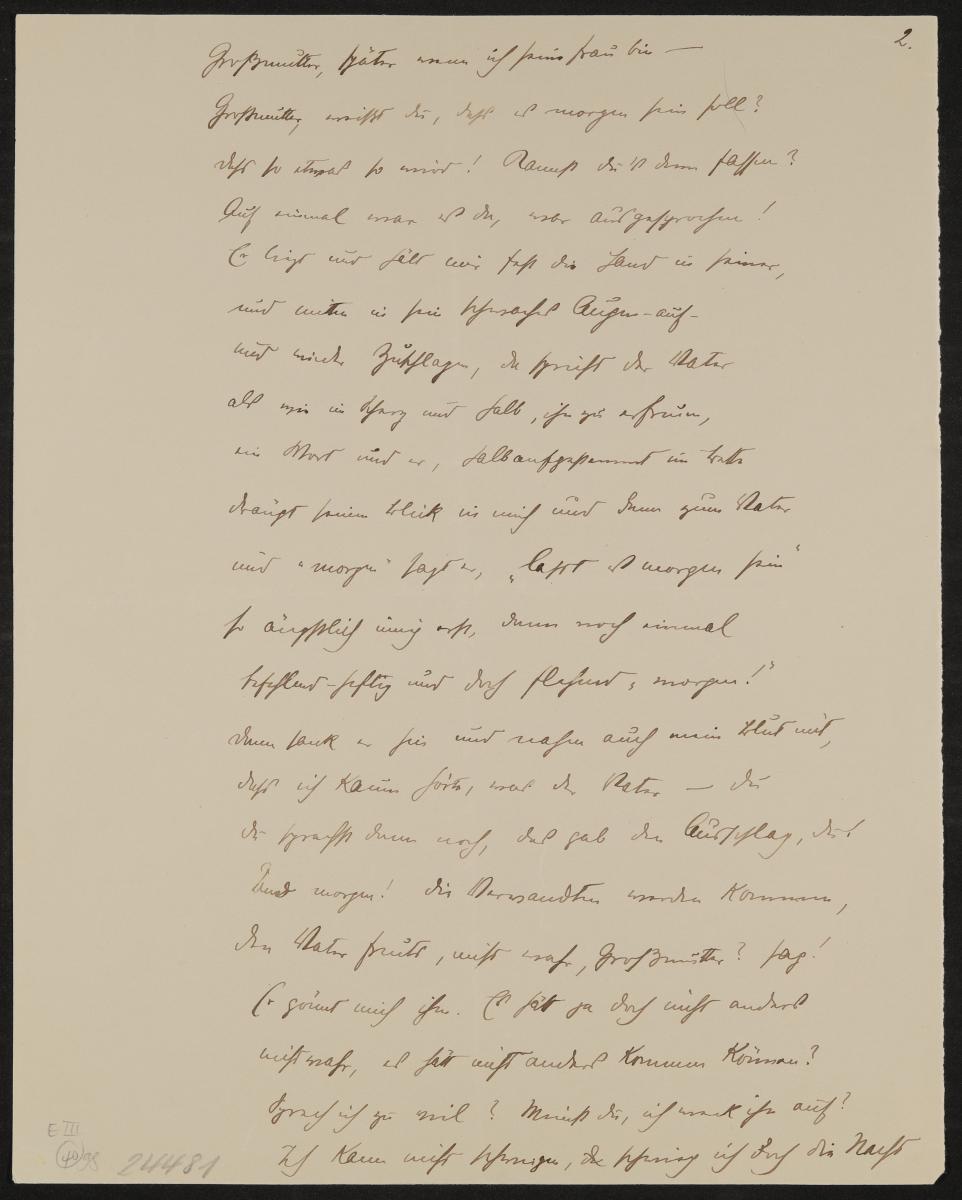 2.
Großmutter, später wenn ich seine Frau bin —
Großmutter, weißt du, daß es morgen sein soll?
daß so etwas so wird! Kannst du's denn fassen?
Auf einmal war es da, war ausgesprochen!
Er liegt und hält mir fest die Hand in seiner,
und mitten in sein schwaches Augen-auf-
und wieder Zuschlagen, da spricht der Vater
als wie im Scherz und halb, ihn zu erfreun,
ein Wort und er, halbaufgestemmt im Bette
drängt seinen Blick in mich und dann zum Vater
und "morgen" sagt er, „lasst es morgen sein"
so ängstlich innig erst, dann noch einmal
befehlend-heftig und doch flehend „morgen!"
dann sank er hin und nahm auch mein Blut mit,
daß ich kaum hörte, was der Vater — du
du sprachst dann noch, das gab den Ausschlag, du!
Und morgen! die Verwandten werden kommen,
den Vater freuts, nicht wahr, Großmutter? sag!
Er gönnt mich ihm. Es hätt ja doch nicht anders
nicht wahr, es hätt nicht anders kommen können?
Sprach ich zu viel? Meinst du, ich weck ihn auf?
Ich kann nicht schweigen, schwieg ich doch die Nacht
E III
98
24481